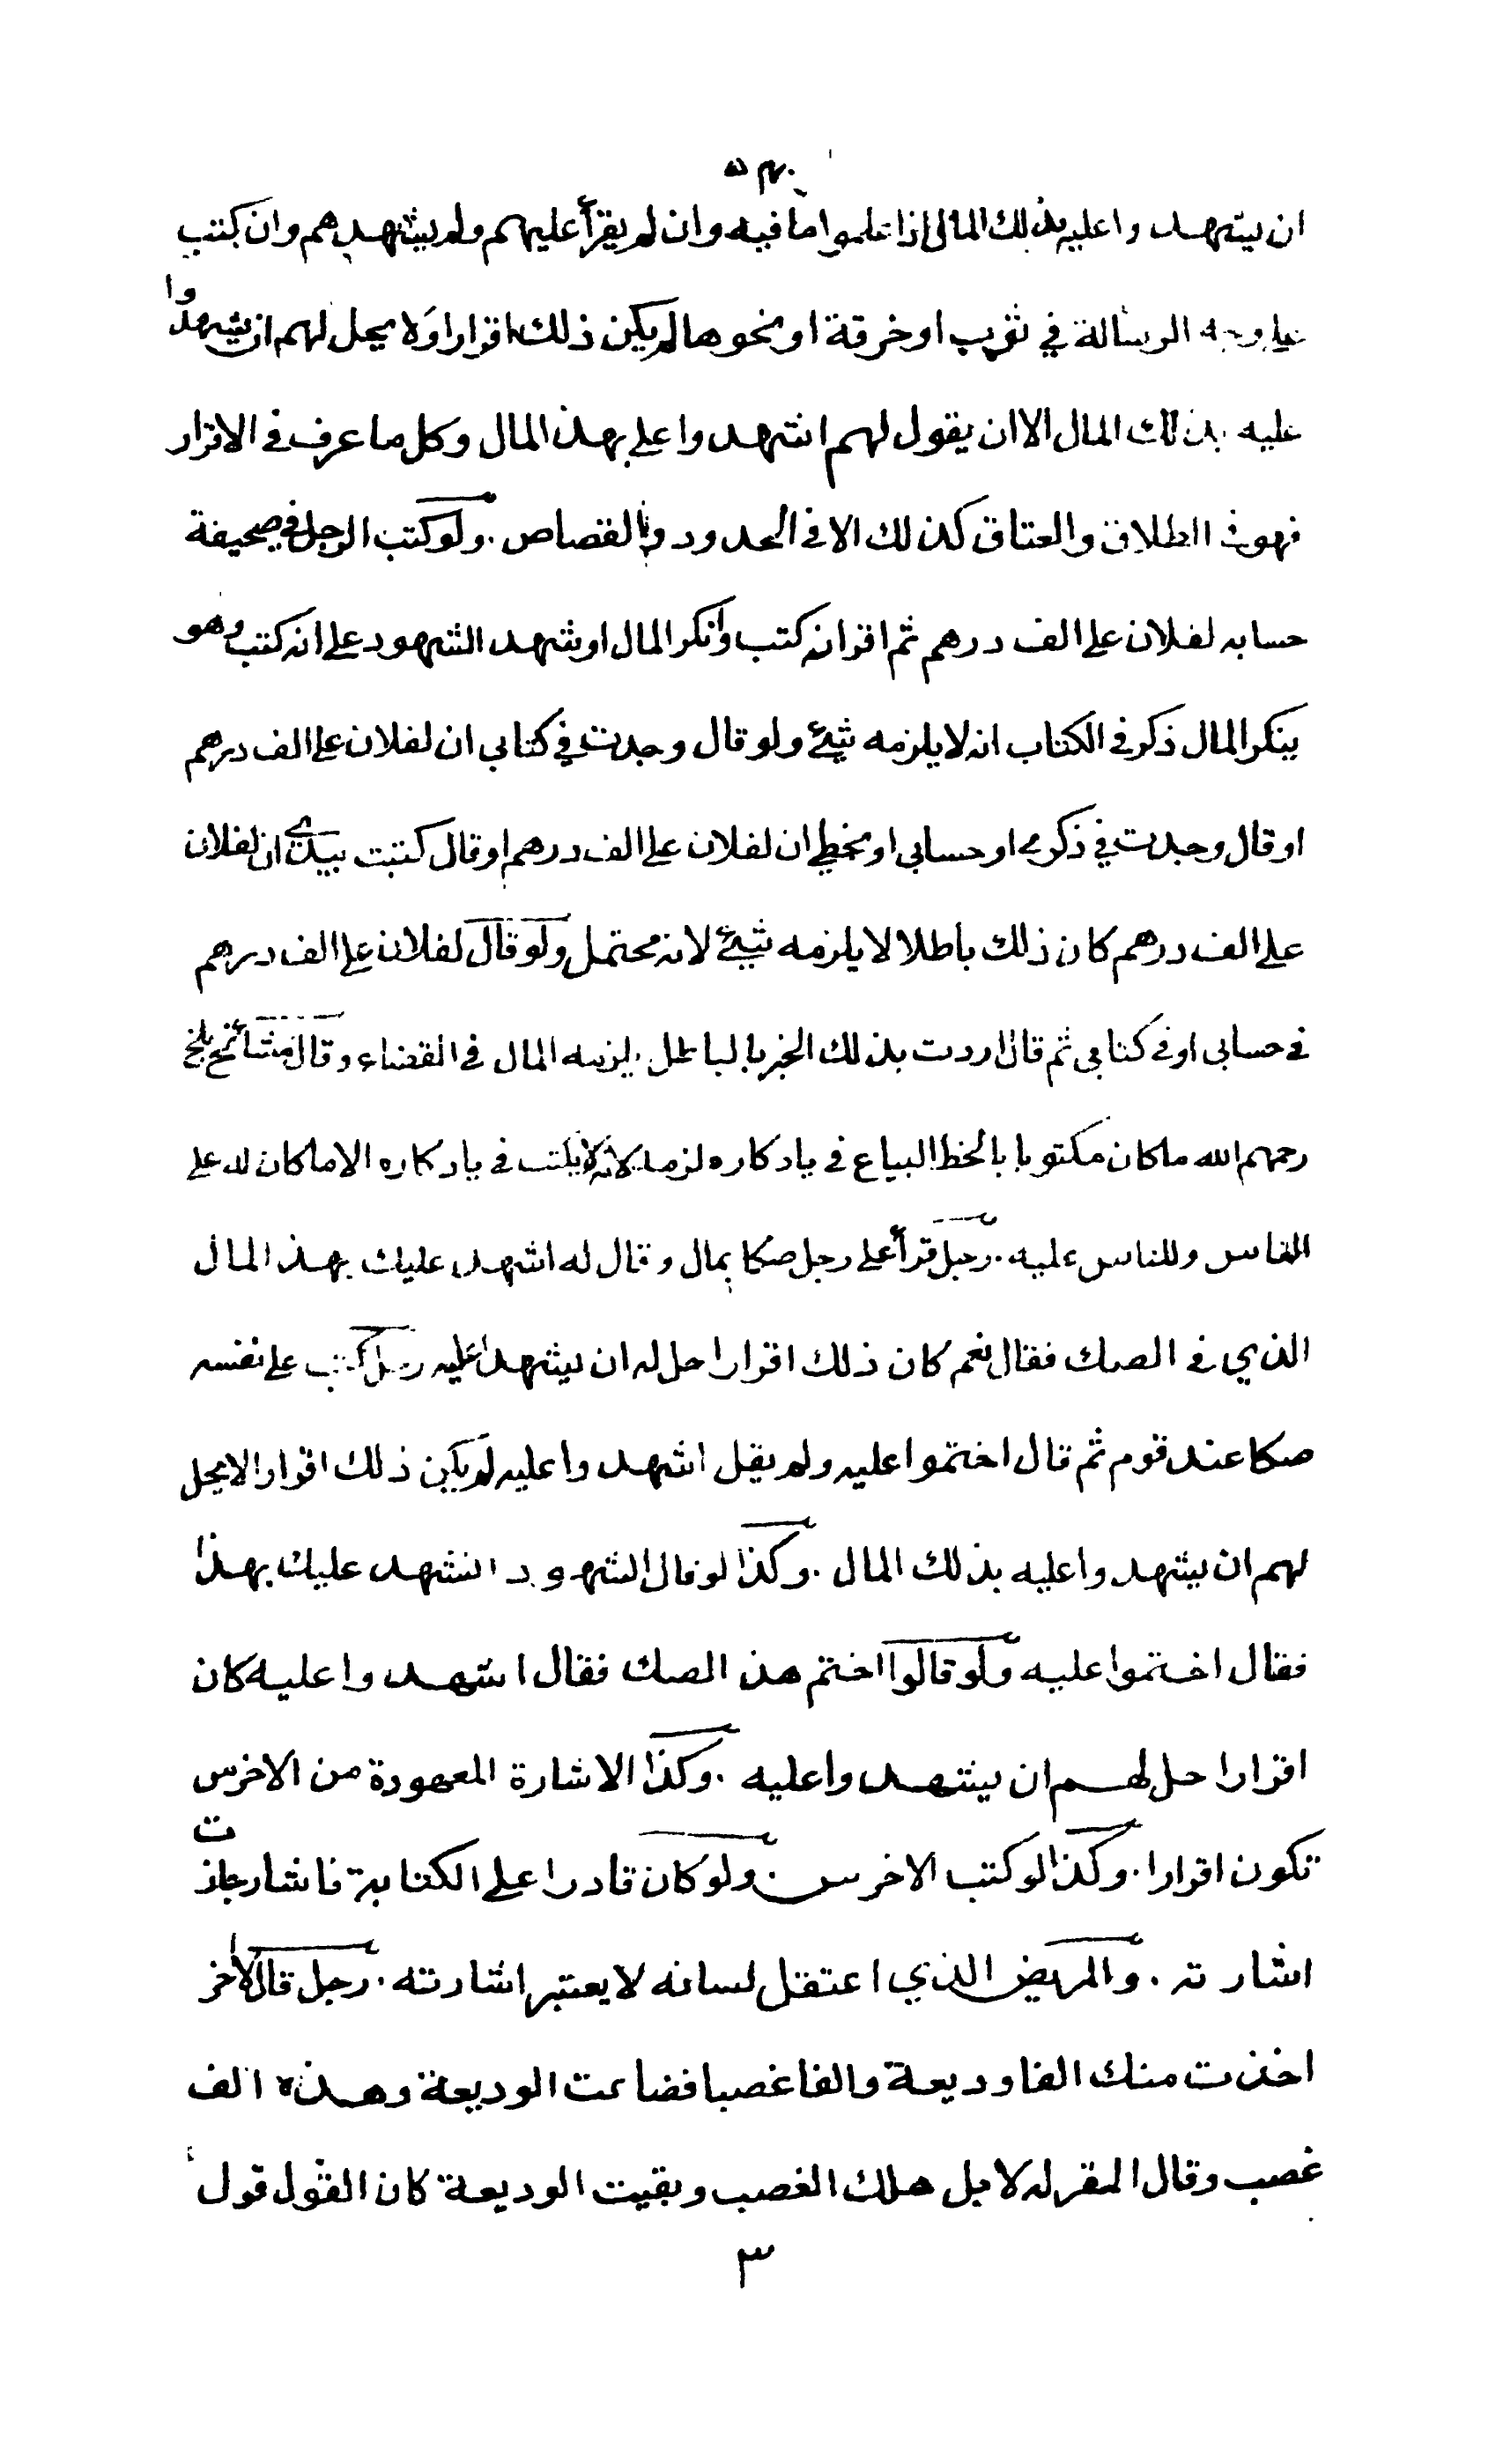 ان يشهدوا عليه بذلك المال اذا علموا ما فيه وان لم يقرأ عليهم ولم يشهدهم وان كتب
على وجه الرسالة في ثوب او خرقة او نحوها لم يكن ذلك اقرارا ولا يحل لهم ان يشهدوا
عليه بذلك المال الا ان يقول لهم اشهدوا علي بهذا المال وكل ما عرف في الاقرار
فهو في الطلاق والعتاق كذلك الا في الحدود والقصاص . ولو كتب الرجل في صحيفة
حسابه لفلان علي الف درهم ثم اقر انه كتب وانكر المال او شهد الشهود على انه كتب وهو
ينكر المال ذكر في الكتاب انه لا يلزمه شيئ ولو قال وجدت في كتابي ان لفلان علي الف درهم
او قال وجدت في ذكري او حسابي او بخطي ان لفلان علي الف درهم او قال كتبت بيدي ان لفلان
علي الف درهم كان ذلك باطلا لا يلزمه شيئ لانه محتمل ولو قال لفلان علي الف درهم
في حسابي او في كتابي ثم قال اردت بذلك الخبر بالباطل يلزمه المال في القضاء وقال مشائخ بلخ
رحمهم الله ما كان مكتوبا بالخط البياع في يادكاره لزمه لانه لا يكتب في يادكاره الا ما كان له على
الناس وللناس عليه . رجل قرأ على رجل صكا بمال وقال له اشهد عليك بهذا المال
الذي في الصك فقال نعم كان ذلك اقرارا حل له ان يشهد عليه رجل كتب على نفسه
صكا عند قوم ثم قال اختموا عليه ولم يقل اشهدوا عليه لم يكن ذلك اقرارا لا يحل
لهم ان يشهدوا عليه بذلك المال . وكذا لو قال الشهود انشهد عليك بهذا
فقال اختموا عليه ولو قالوا اختم هذا الصك فقال اشهدوا عليه كان
اقرارا حل لهم ان يشهدوا عليه . وكذا الاشارة المعهودة من الاخرس
تكون اقرارا . وكذا لو كتب الاخرس . ولو كان قادرا على الكتابة فاشار جازت
اشارته . والمريض الذي اعتقل لسانه لا يعتبر اشارته . رجل قال لاخر
اخذت منك الفا وديعة والفا غصبا فضاعت الوديعة وهذه الف
غصب وقال المقر له لا بل هلك الغصب وبقيت الوديعة كان القول قول
٣